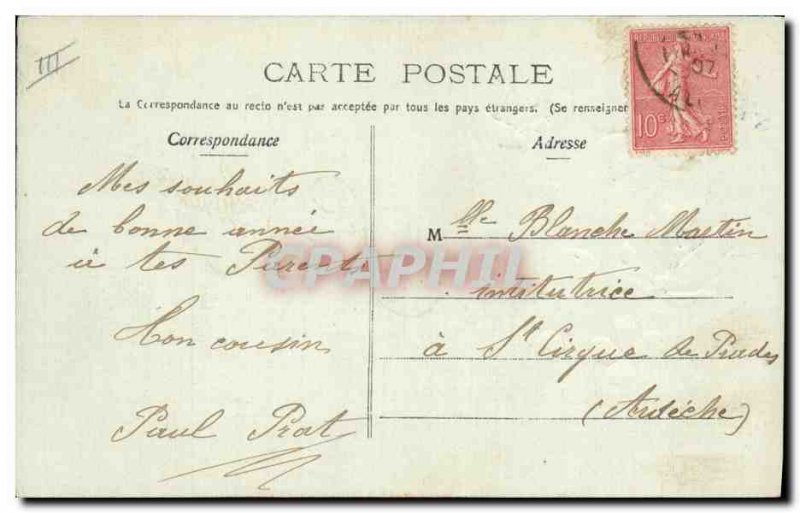 III
CARTE POSTALE
La Correspondance au recto n'est pas acceptée par tous les pays étrangers. (Se renseigner
Correspondance
Adresse
10c
07
Mes souhaits
de bonne année
à tes Parents
Ton cousin
Paul Prat
Mlle Blanche Martin
institutrice
à St Cirgue de Prades
(Ardèche)
CPAPHIL